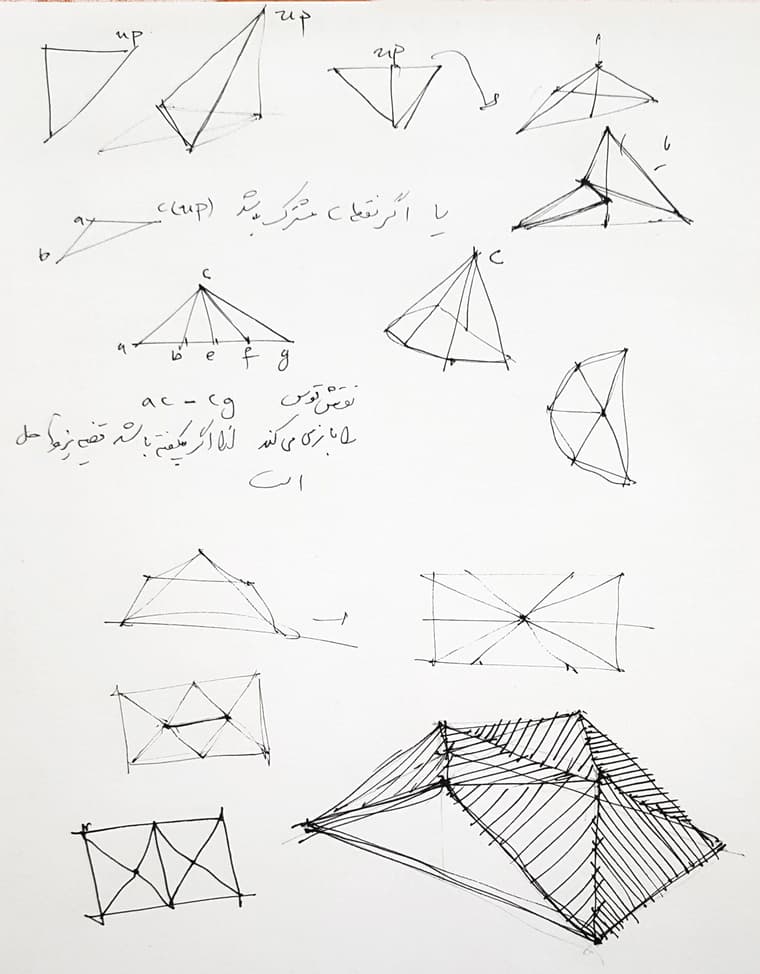 up
up
up
یا
a c (up) یا اگر نقطه c مشترک باشد
b
c
c
a b e f g
نقش قوس ac - cg
را بازی می کند لذا اگر باشد قضیه حل
است